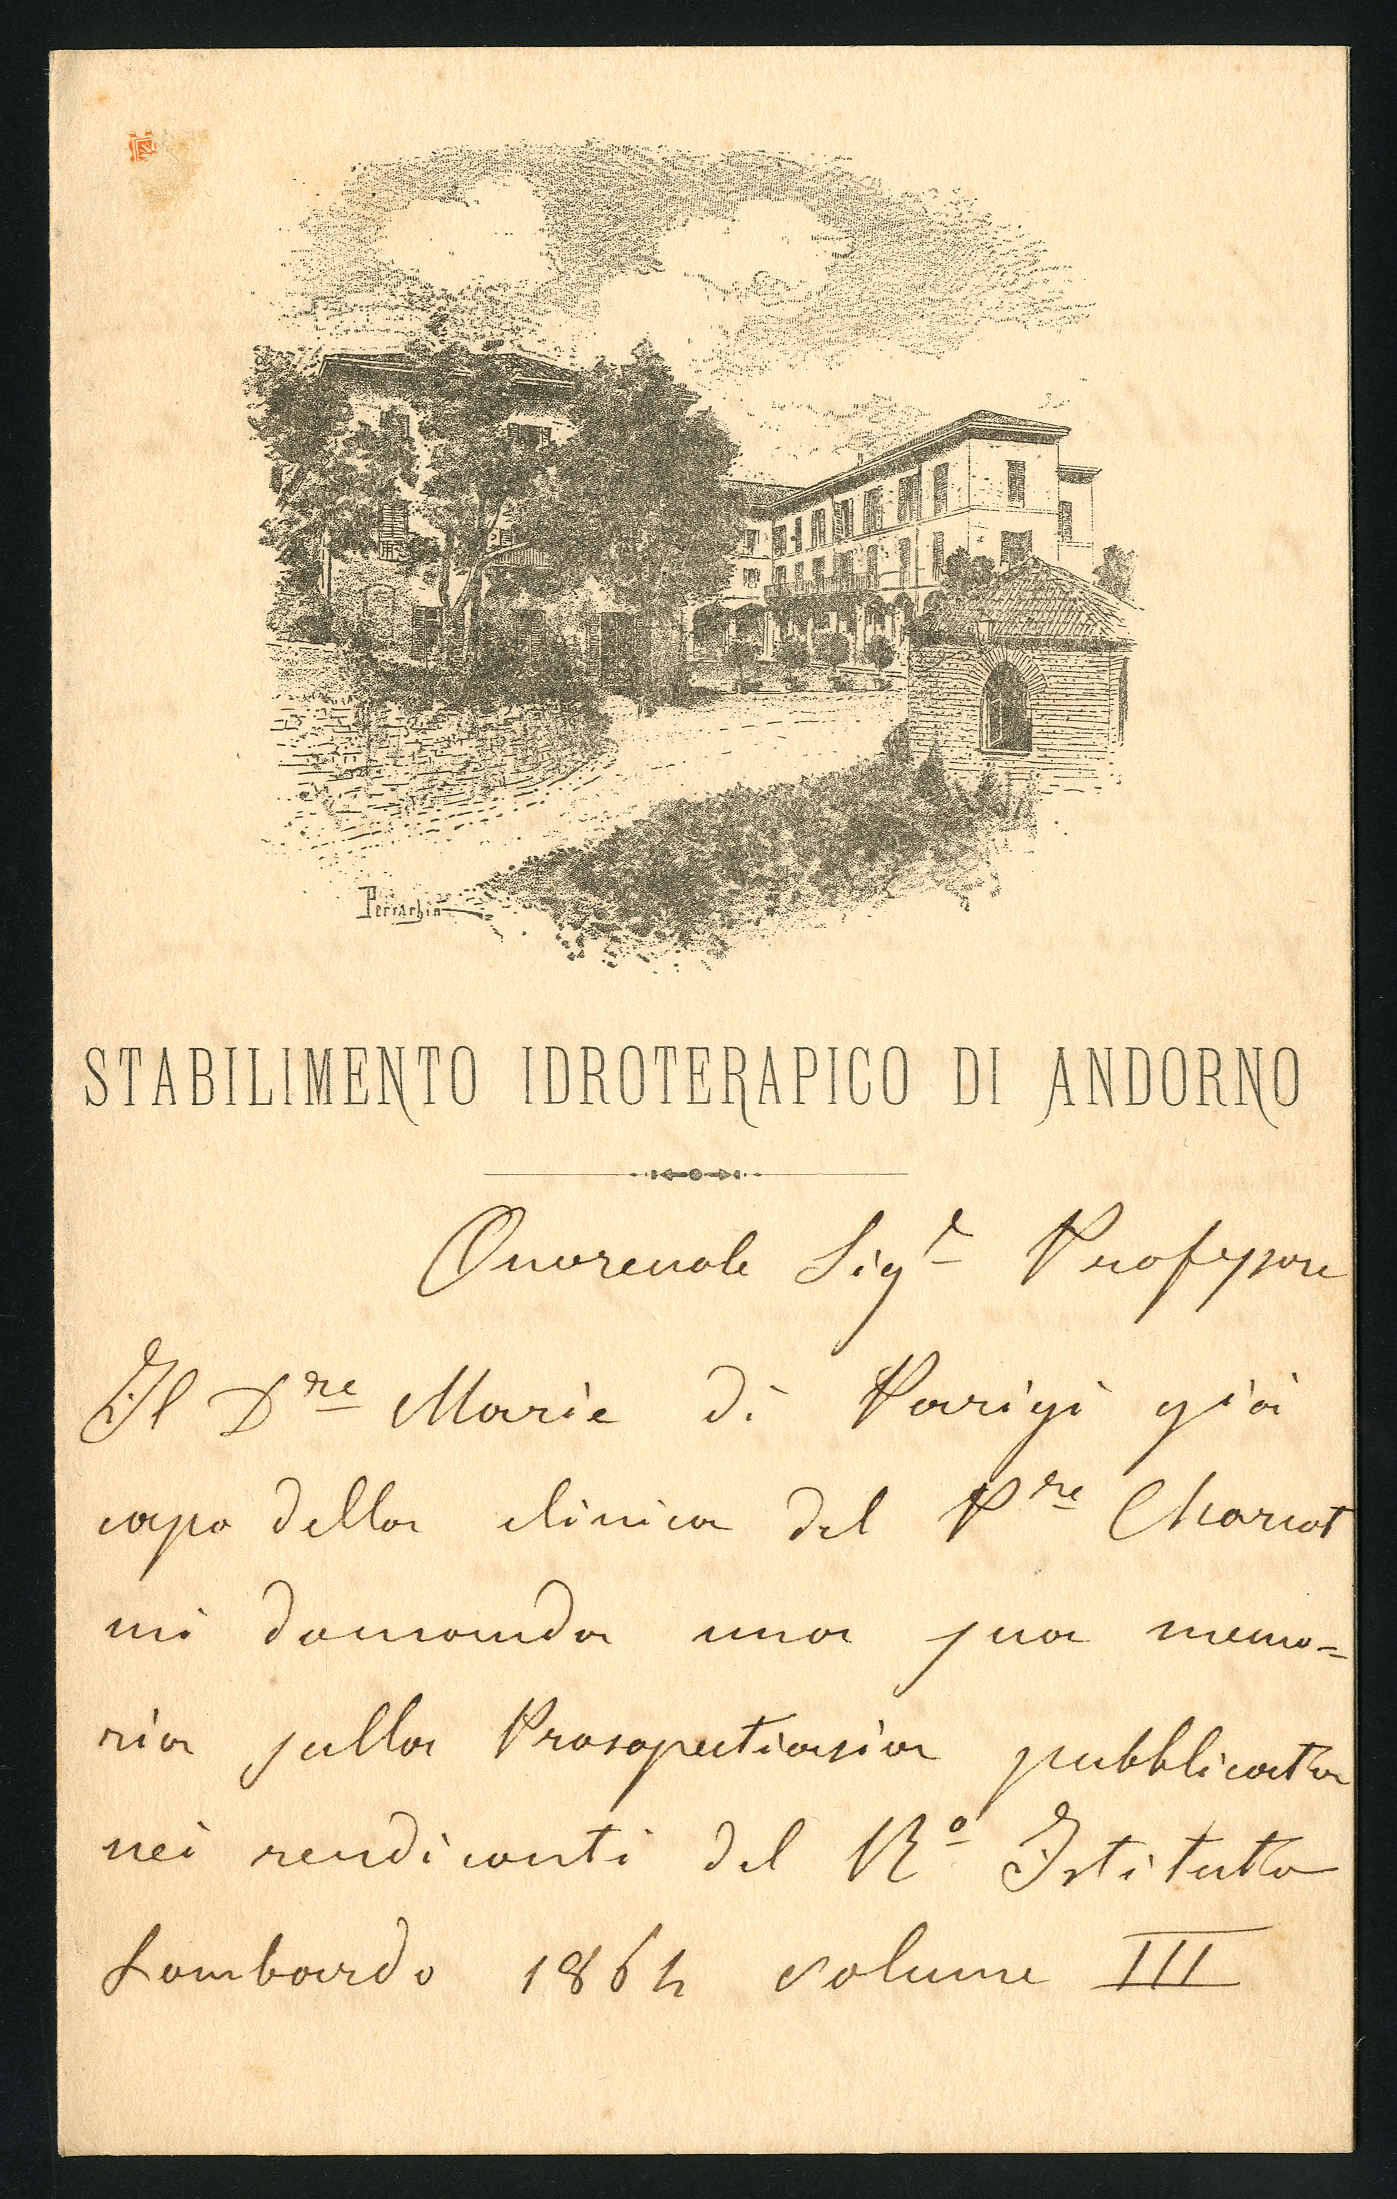 Perrachio
STABILIMENTO IDROTERAPICO DI ANDORNO
Onorevole Sigr Professore
Il Dre Marie di Parigi già
capo della clinica del Pre Charcot
mi domanda una sua memo=
ria sulla Prosopectasia pubblicata
nei rendiconti del Ro Istituto
Lombardo 1864 volume III